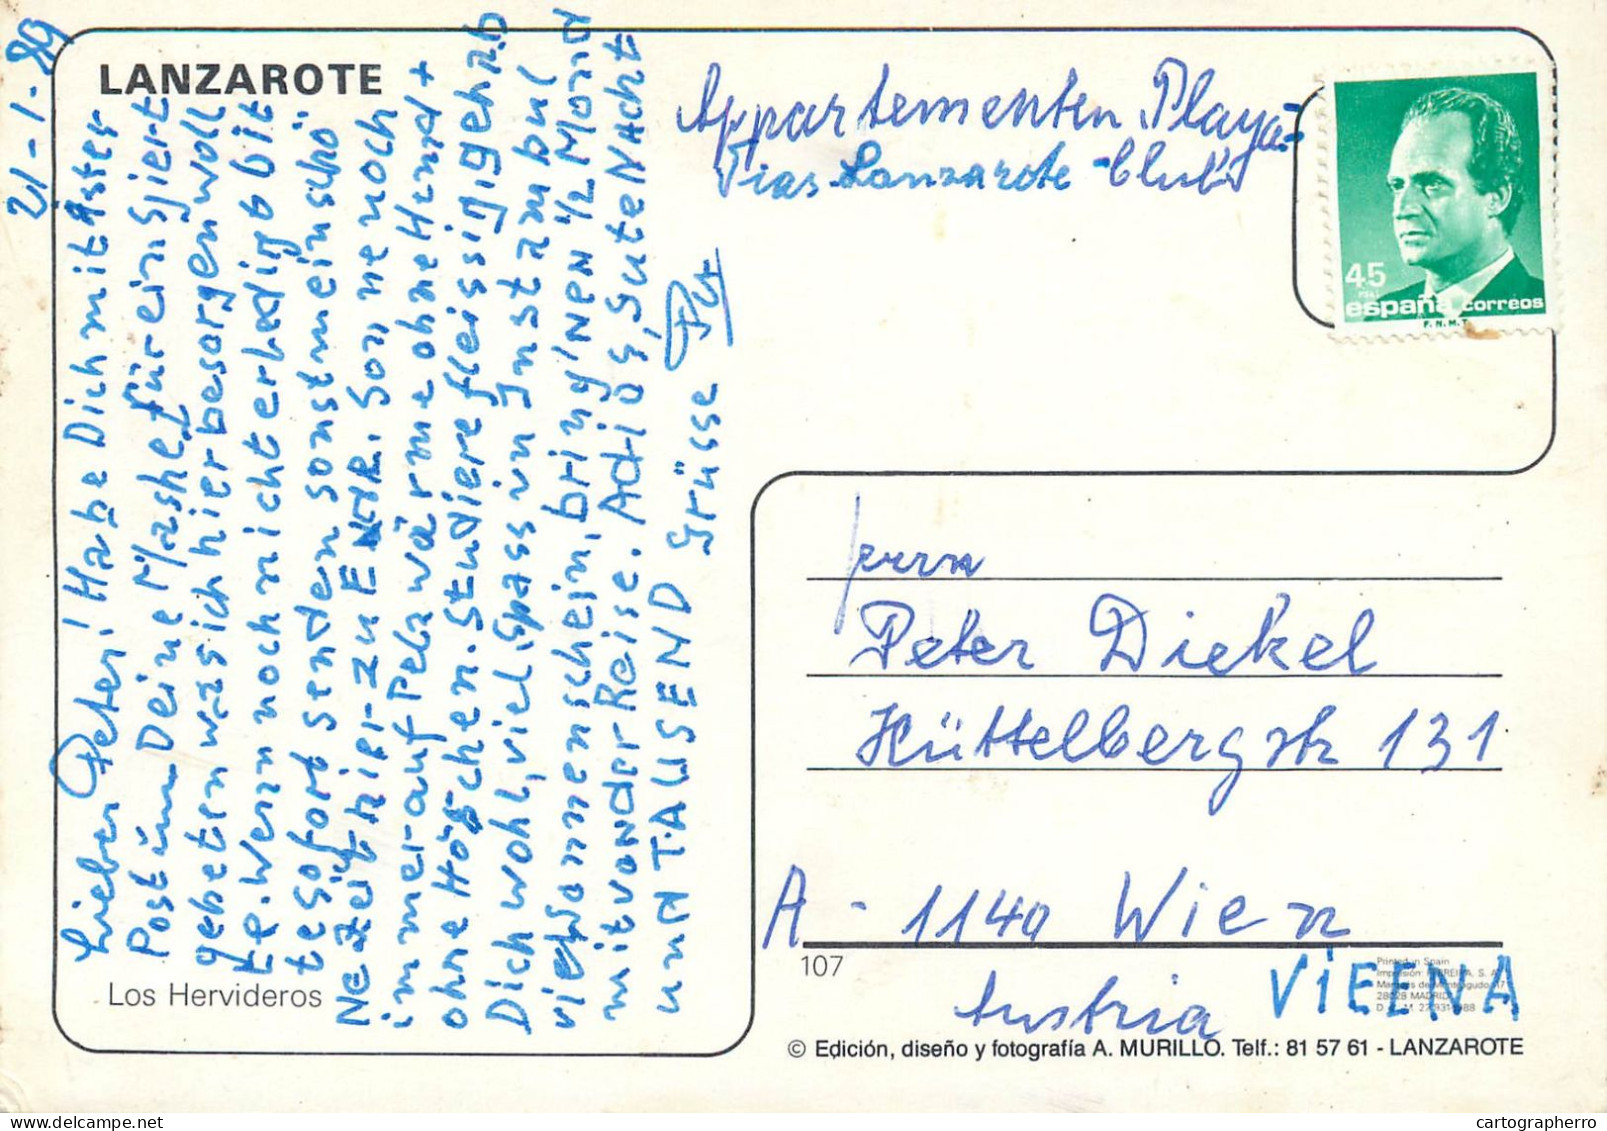 21-1-89
LANZAROTE
Lieber Peter! Habe Dich mit
Post um Deine Mashe für
gebeten was ich hier besorgen woll
te. Wenn noch nicht erledigt bit
te sofort senden sonst mein
hier zu ENDE. Sonne noch
immer auf Pela wärme ohne Hemd +
ohne Höschen. Studiere fleissig gehab
Dich wohl, viel Spass in Instambul
viel Sonnenschein, bring 'NEN 1/2 Mond
mit von der Reise. Adios, gute Nacht
und TAUSEND Grüsse
Los Hervideros
Appartementen Playa-
Vias Lanzarote-Club
45
PTAS
españa correos
F.N.M.T.
Herrn
Peter Diekel
Hüttelbergstr 131
A - 1140 Wien
Austria
VIEENA
107
Printed in Spain
28028 MADRID
© Edición, diseño y fotografía A. MURILLO. Telf.: 81 57 61 - LANZAROTE
cartographerro